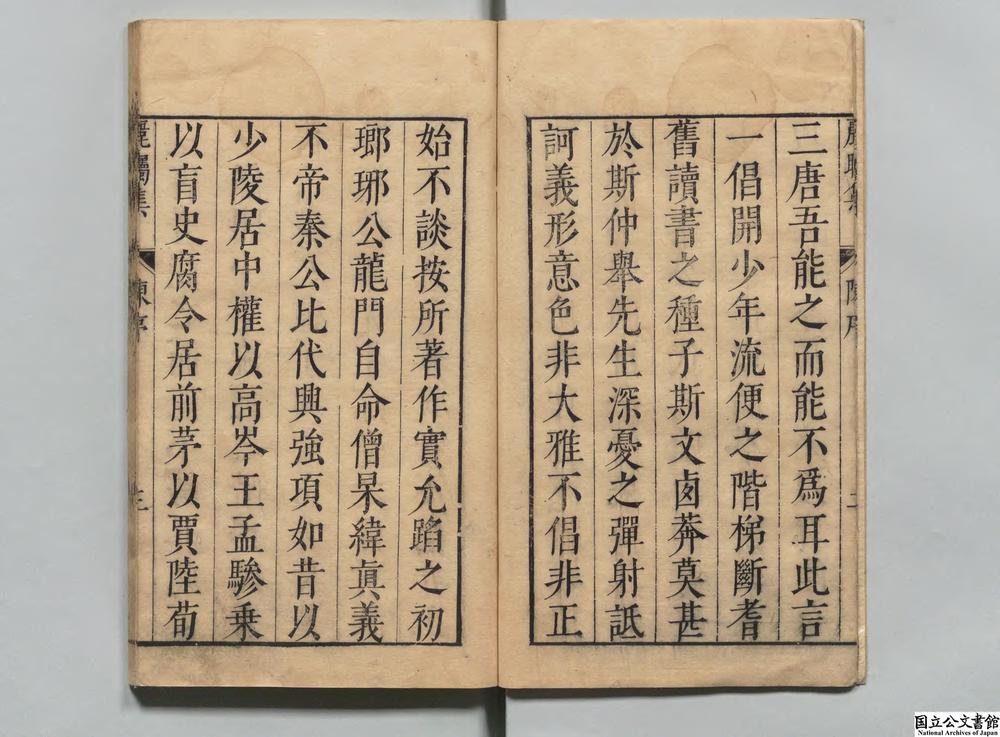 三唐吾能之而能不爲耳此言
一倡開少年流便之階梯斷耆
舊讀書之種子斯文鹵莽莫甚
於斯仲舉先生深憂之彈射詆
訶義形意色非大雅不倡非正
始不談按所著作實允蹈之初
瑯琊公龍門自命僧杲緯真義
不帝秦公比代興強項如昔以
少陵居中權以高岑王孟驂乗
以盲史腐令居前茅以賈陸荀
集
三
国立公文書館
National Archives of Japan